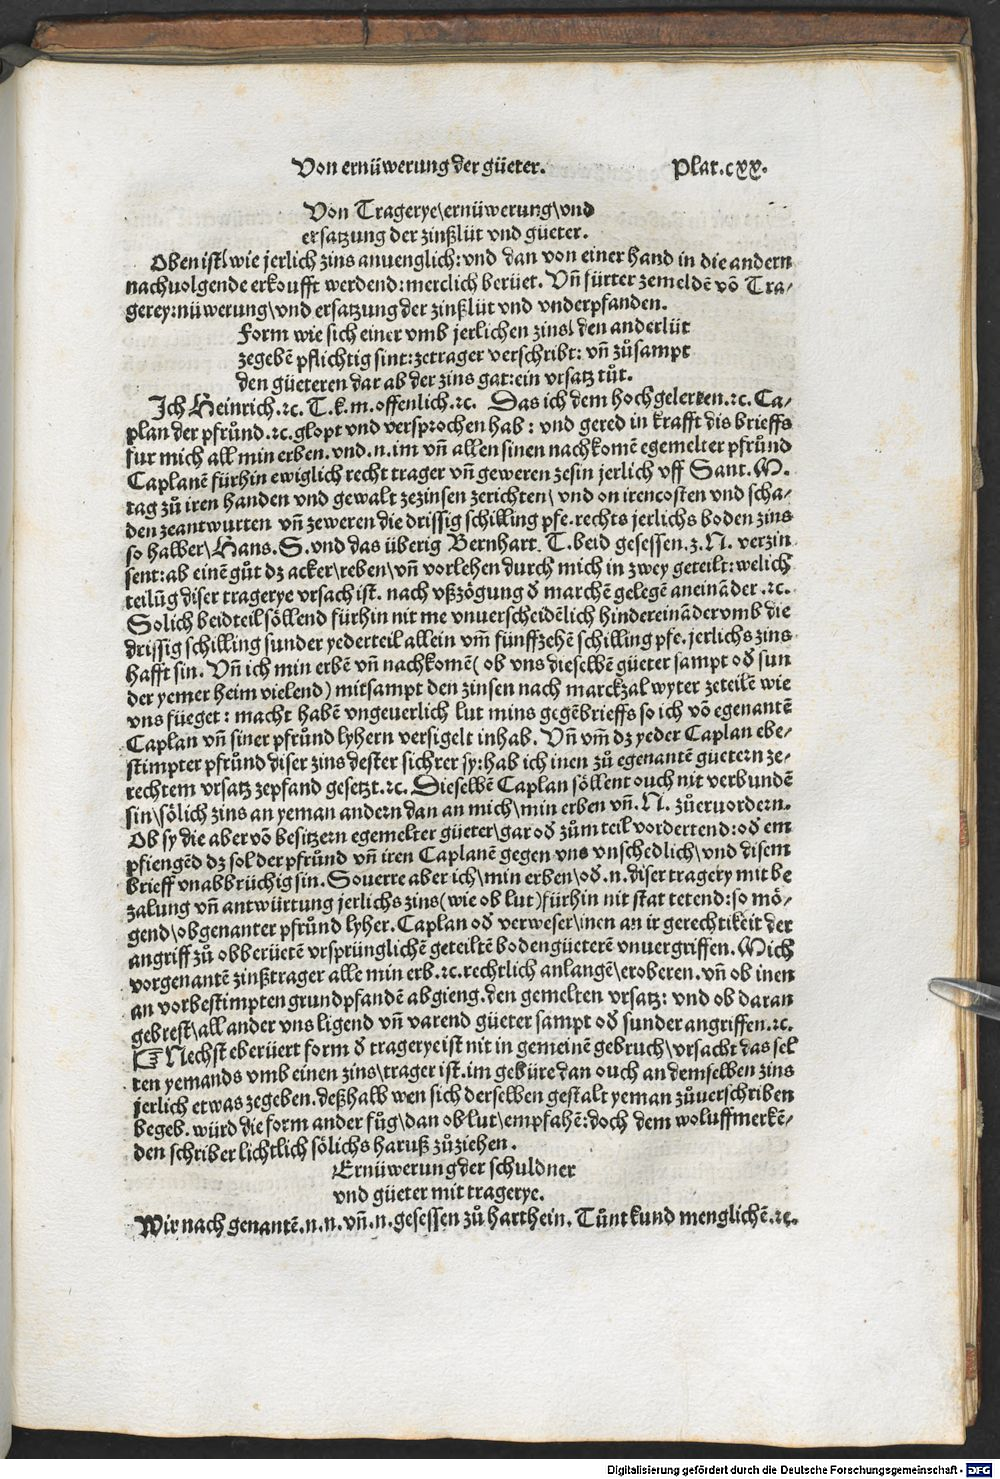 Von ernüwerung der güeter. Plat.cxx.
Von Tragerye\ernüwerung\vnd
ersatzung der zinßlüt vnd güeter.
Oben ist\wie jerlich zins anuenglich:vnd dan von einer hand in die andern
nachuolgende erkoufft werdend:merclich berüet. Vn̄ fürter zemeldē vō Tra⸗
gerey:nüwerung\vnd ersatzung der zinßlüt vnd vnderpfanden.
Form wie sich einer vmb jerlichen zins\den anderlüt
zegebē pflichtig sint:zetrager verschribt: vn̄ zůsampt
den güeteren dar ab der zins gat:ein vrsatz tůt.
Ich Heinrich.⁊c. T.k.m.offenlich.⁊c. Das ich dem hochgelerten.⁊c. Ca⸗
plan der pfrůnd.⁊c.glopt vnd versprochen hab: vnd gered in krafft dis brieffs
fur mich all min erben.vnd.n.im vn̄ allen sinen nachkomē egemelter pfrůnd
Caplanē fürhin ewiglich recht trager vn̄ geweren zesin jerlich vff Sant.M.
tag zů iren handen vnd gewalt zezinsen zerichten\ vnd on irencosten vnd scha⸗
den zeantwurten vn̄ zeweren die drissig schilling pfe.rechts jerlichs boden zins
so halber\Hans.S.vnd das überig Bernhart. T.beid gesessen.z.N. verzin⸗
sent:ab einē gůt dz acker\reben\vn̄ vorlehen durch mich in zwey geteilt:welich
teilūg diser tragerye vrsach ist. nach vßzögung ð marchē gelegē aneināder.⁊c.
Solich beidteil söllend fürhin nit me vnuerscheidēlich hindereināder vmb die
drissig schilling sunder yederteil allein vm̄ fünffzehē schilling pfe.jerlichs zins⸗
hafft sin. Vn̄ ich min erbē vn̄ nachkomē( ob vns dieselbē güeter sampt oð sun
der yemer heim vielend) mitsampt den zinsen nach marckzal wyter zeteilē wie
vns füeget: macht habē vngeuerlich lut mins gegēbrieffs so ich vō egenantē
Caplan vn̄ siner pfrůnd lyhern versigelt inhab. Vn̄ vm̄ dz yeder Caplan ebe⸗
stimpter pfrůnd diser zins dester sichrer sy:hab ich inen zů egenantē güetern ze⸗
rechtem vrsatz zepfand gesetzt.⁊c. Dieselbē Caplan söllent ouch nit verbundē
sin\sölich zins an yeman andern dan an mich\min erben vn̄.N. zůeruordern.
Ob sy die aber vō besitzern egemelter güeter\gar oð zům teil vordertend:oð em
pfiengēd dz sol der pfrůnd vn̄ iren Caplanē gegen vns vnschedlich\vnd disem
brieff vnabbrüchig sin. Souerre aber ich\min erben\oð.n.diser tragery mit be
zalung vn̄ antwürtung jerlichs zins(wie ob lut)fürhin nit stat tetend:so mö⸗
gend\obgenanter pfrůnd lyher.Caplan oð verweser\inen an ir gerechtikeit der
angriff zů obberüetē vrsprünglichē geteiltē bodengüeterē vnuergriffen. Mich
vorgenantē zinßtrager alle min erb.⁊c.rechtlich anlangē\eroberen.vn̄ ob inen
an vorbestimpten grundpfandē abgieng.den gemelten vrsatz: vnd ob daran
gebrest\all ander vns ligend vn̄ varend güeter sampt oð sunder angriffen.⁊c.
☞Nechst eberüert form ð tragerye ist nit in gemeinē gebruch\vrsacht das sel
ten yemands vmb einen zins\trager ist.im gebüre dan ouch an demselben zins
jerlich etwas zegeben.deßhalb wen sich derselben gestalt yeman zůuerschriben
begeb.würd die form ander fůg\dan ob lut\empfahē:doch dem woluffmerkē⸗
den schriber lichtlich sölichs haruß zůziehen.
Ernüwerung der schuldner
vnd güeter mit tragerye.
Wir nach genantē.n.n.vn̄.n.gesessen zů harthein. Tůnt kund menglichē.⁊c.
Digitalisierung gefördert durch die Deutsche Forschungsgemeinschaft - DFG